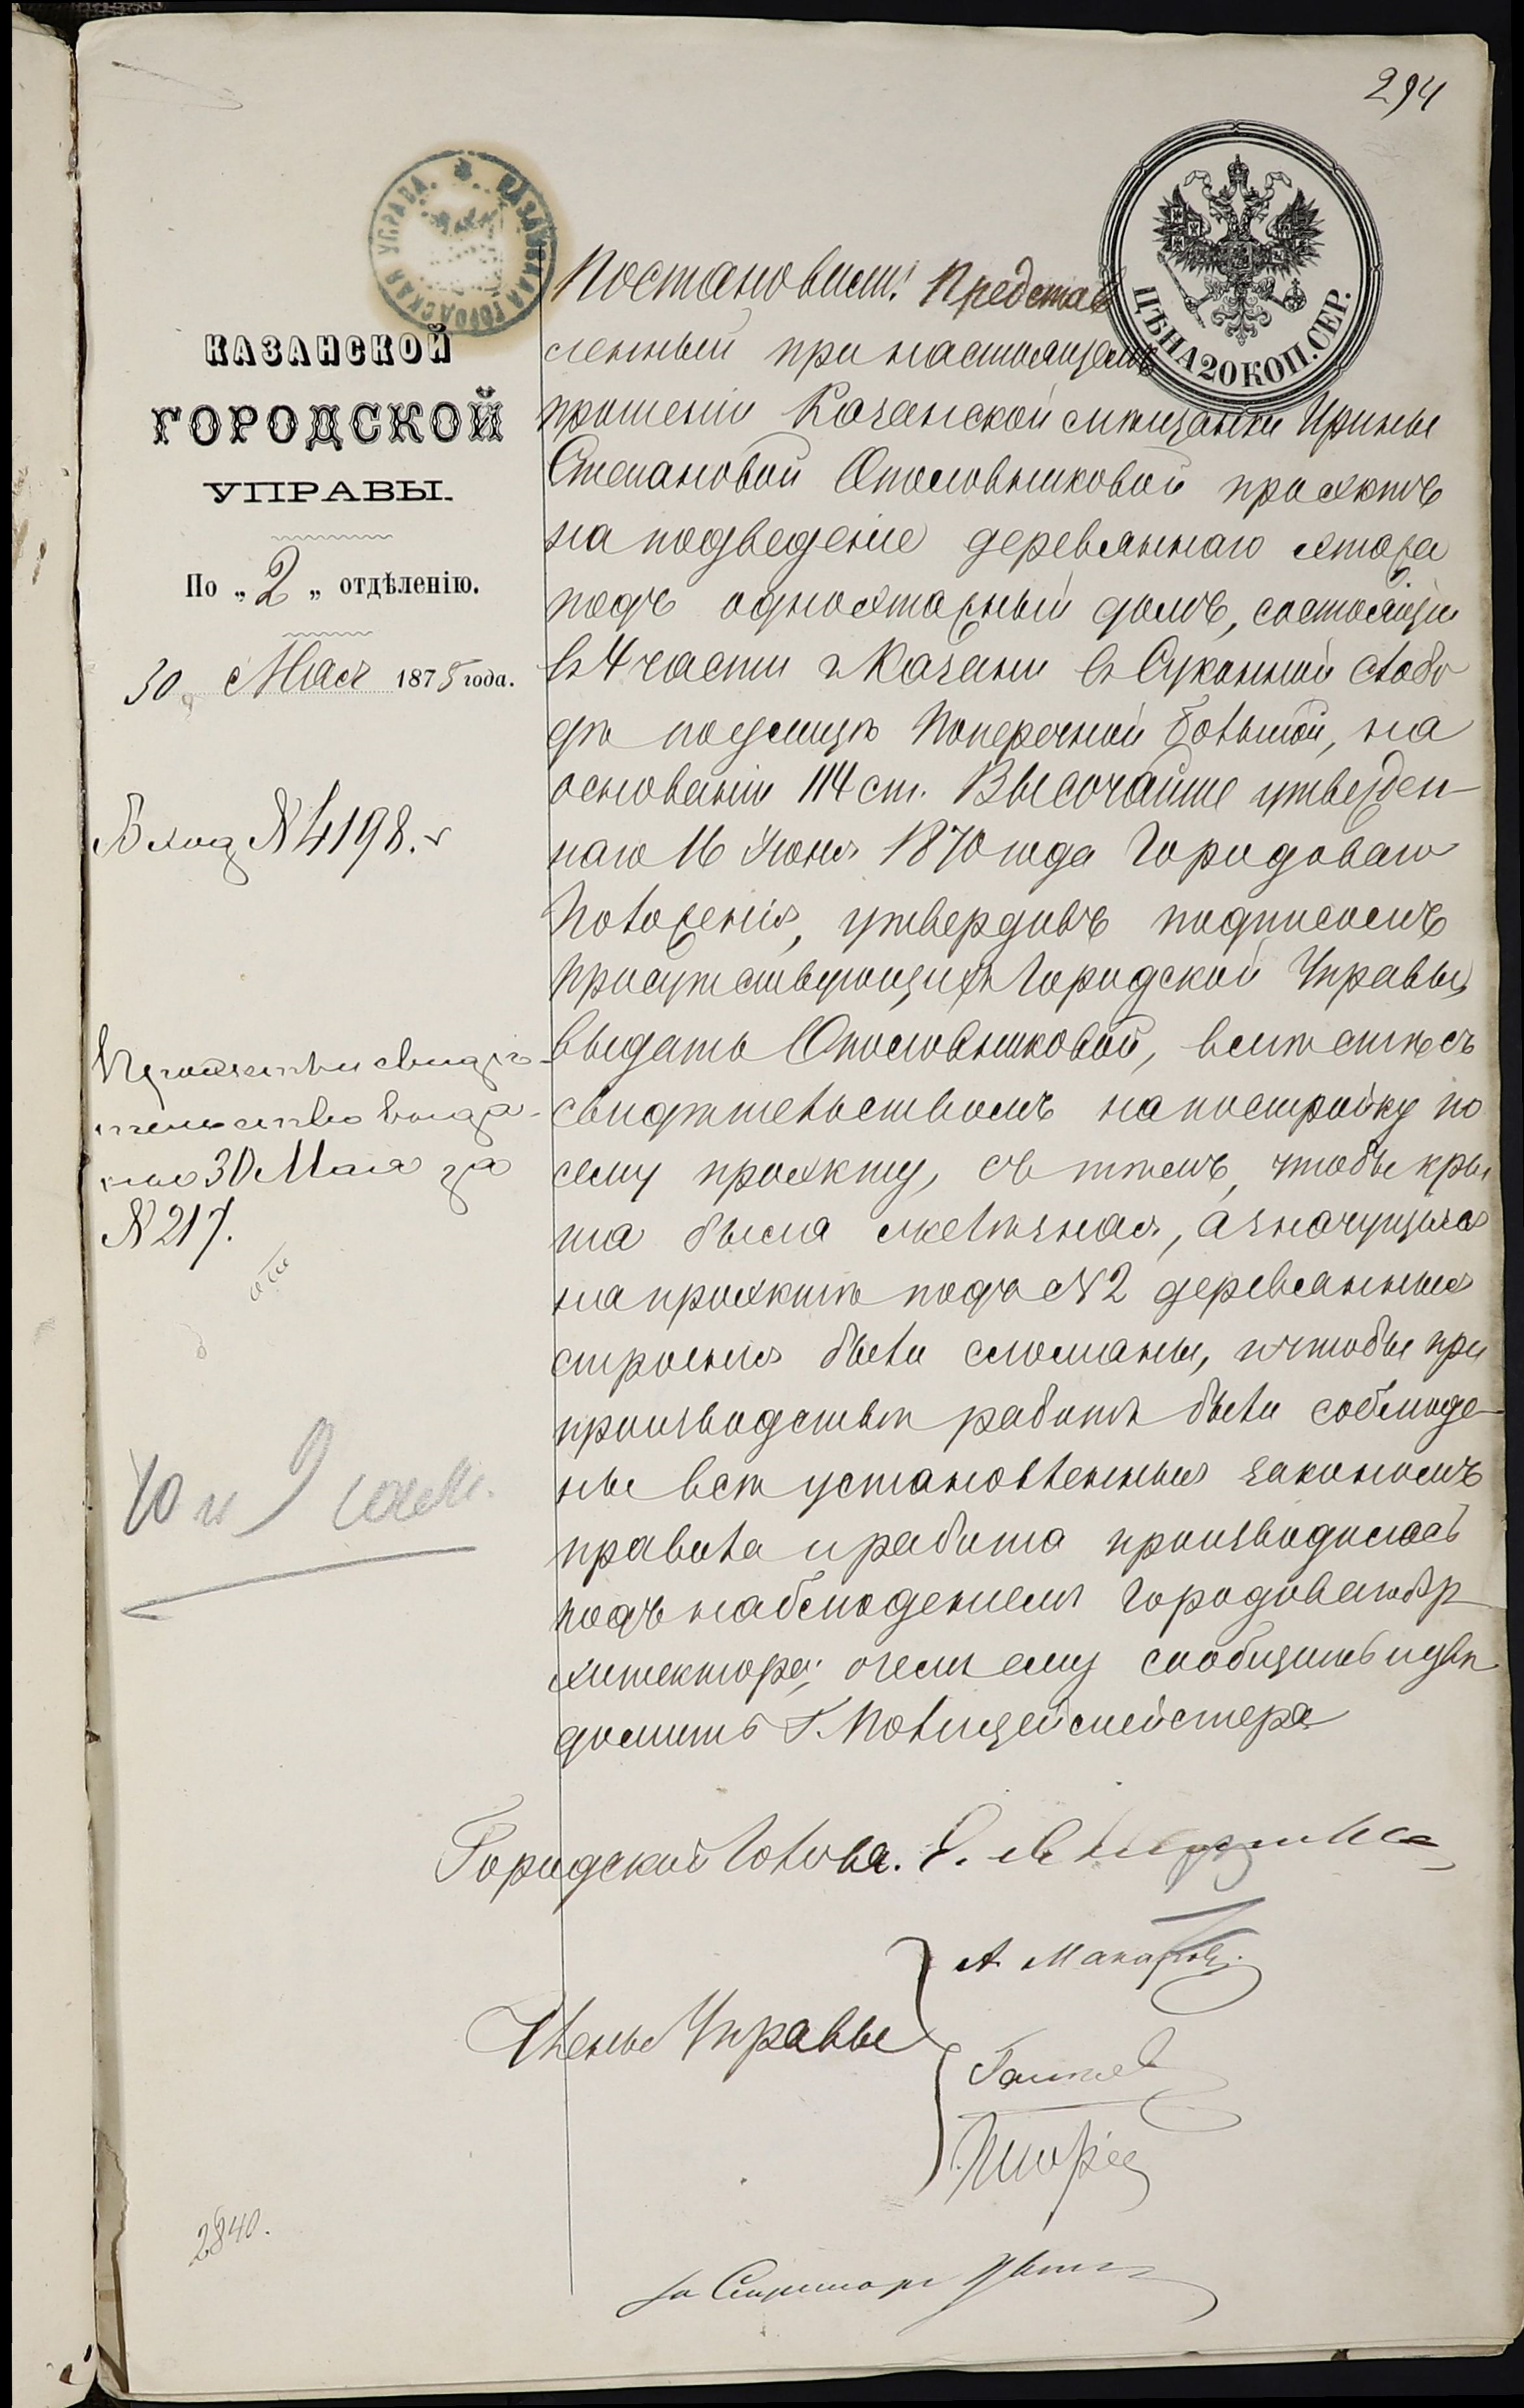 294
КАЗАНСКАЯ ГОРОДСКАЯ УПРАВА.
ЦѢНА 20 КОП. СЕР.
КАЗАНСКОЙ
ГОРОДСКОЙ
УПРАВЫ.
По „2„ отдѣленію.
30 Мая 1875 года.
Вход №4198.
свидѣ-
тельство выда-
но 30 Мая за
№217.
10 и 9
2840.
Постановили: Представ
ленный при настоящемъ
прошеніи Казанской мѣщанки Ирины
Степановой проэктъ
на подведеніе деревяннаго этажа
подъ одноэтажный домъ, состоящій
въ 4 части г. Казани въ Суконной слобо
дѣ по улицѣ Поперечной Большой, на
основаніи 114 ст. Высочайше утвержден-
наго 16 Іюня 1870 года Городоваго
Положенія, утвердивъ подписомъ
присутствующихъ Городской Управы,
выдать вмѣстѣ съ
свидѣтельствомъ на постройку по
сему проэкту, съ тѣмъ, чтобы кры
ша была желѣзная, а значущіяся
на проэктѣ подъ №2 деревянныя
строенія были сломаны, и чтобы при
производствѣ работъ были соблюде-
ны всѣ установленныя закономъ
правила и работа производилась
подъ наблюденіемъ Городоваго Ар
хитектора; о чемъ ему сообщить и увѣ
домить Г. Полицеймейстера
Городской Голова.
Члены Управы
А. Макаровъ.
за Секретаря